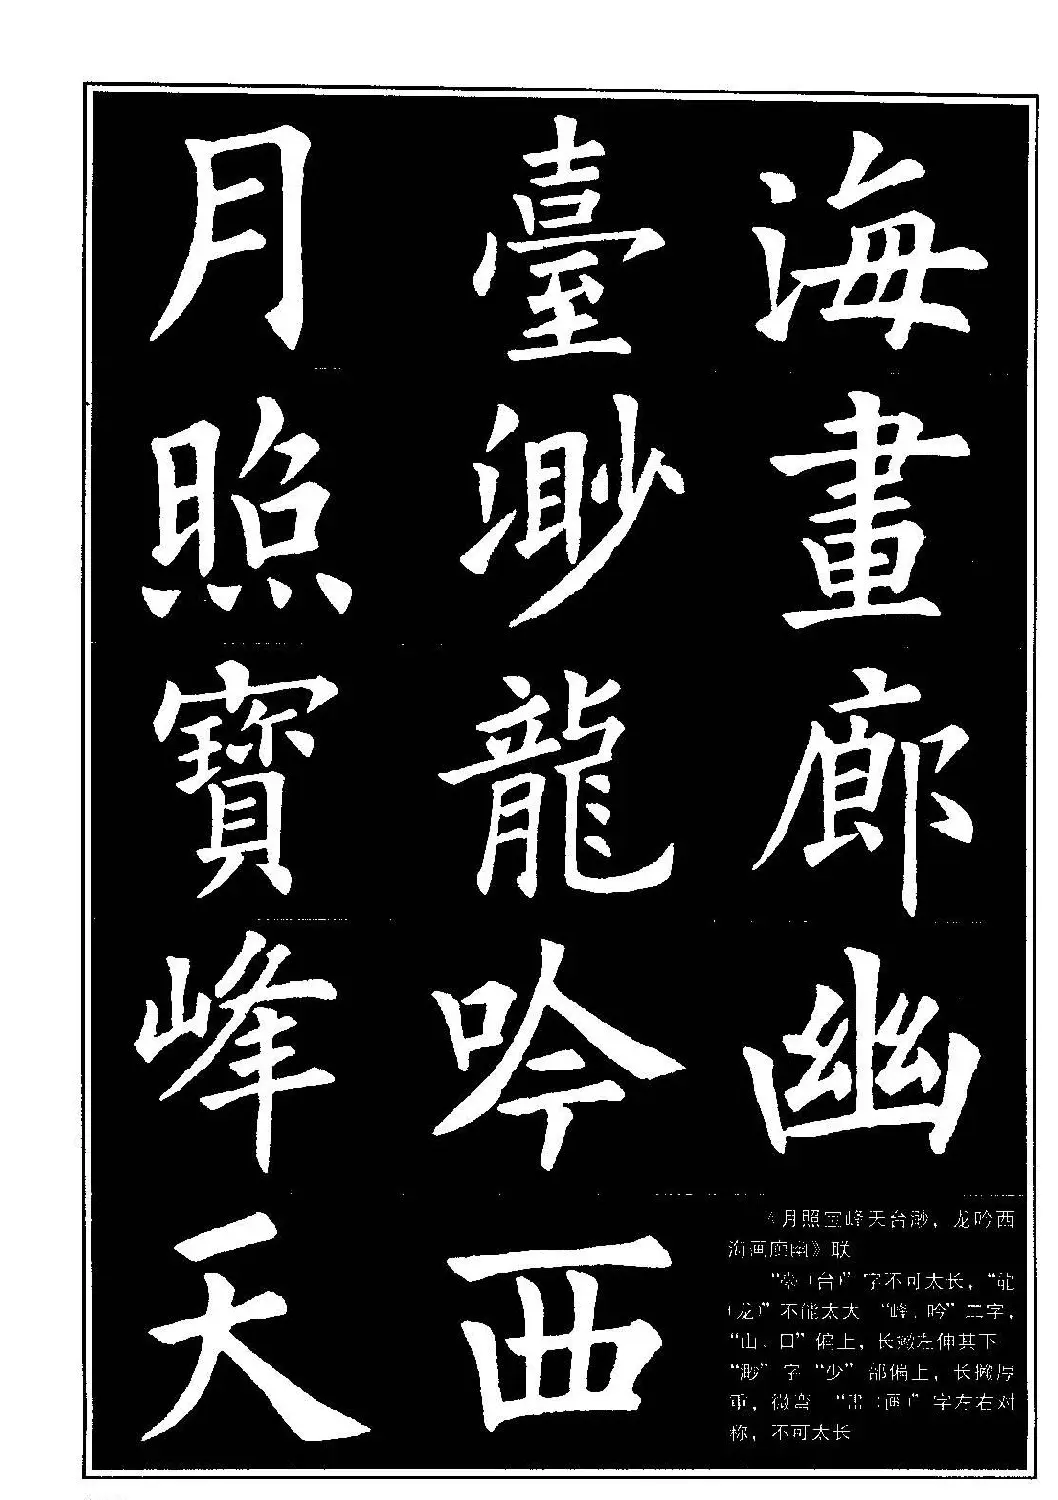 月照寶峰天
臺渺龍吟西
海畫廊幽
《月照宝峰天台渺，龙吟西
海画廊幽》联
“臺（台）”字不可太长，“龍
（龙）”不能太大 “峰、吟”二字，
“山、口”偏上，长撇左伸其下
“渺”字“少”部偏上，长撇厚
重，微弯 “畫（画）”字左右对
称，不可太长